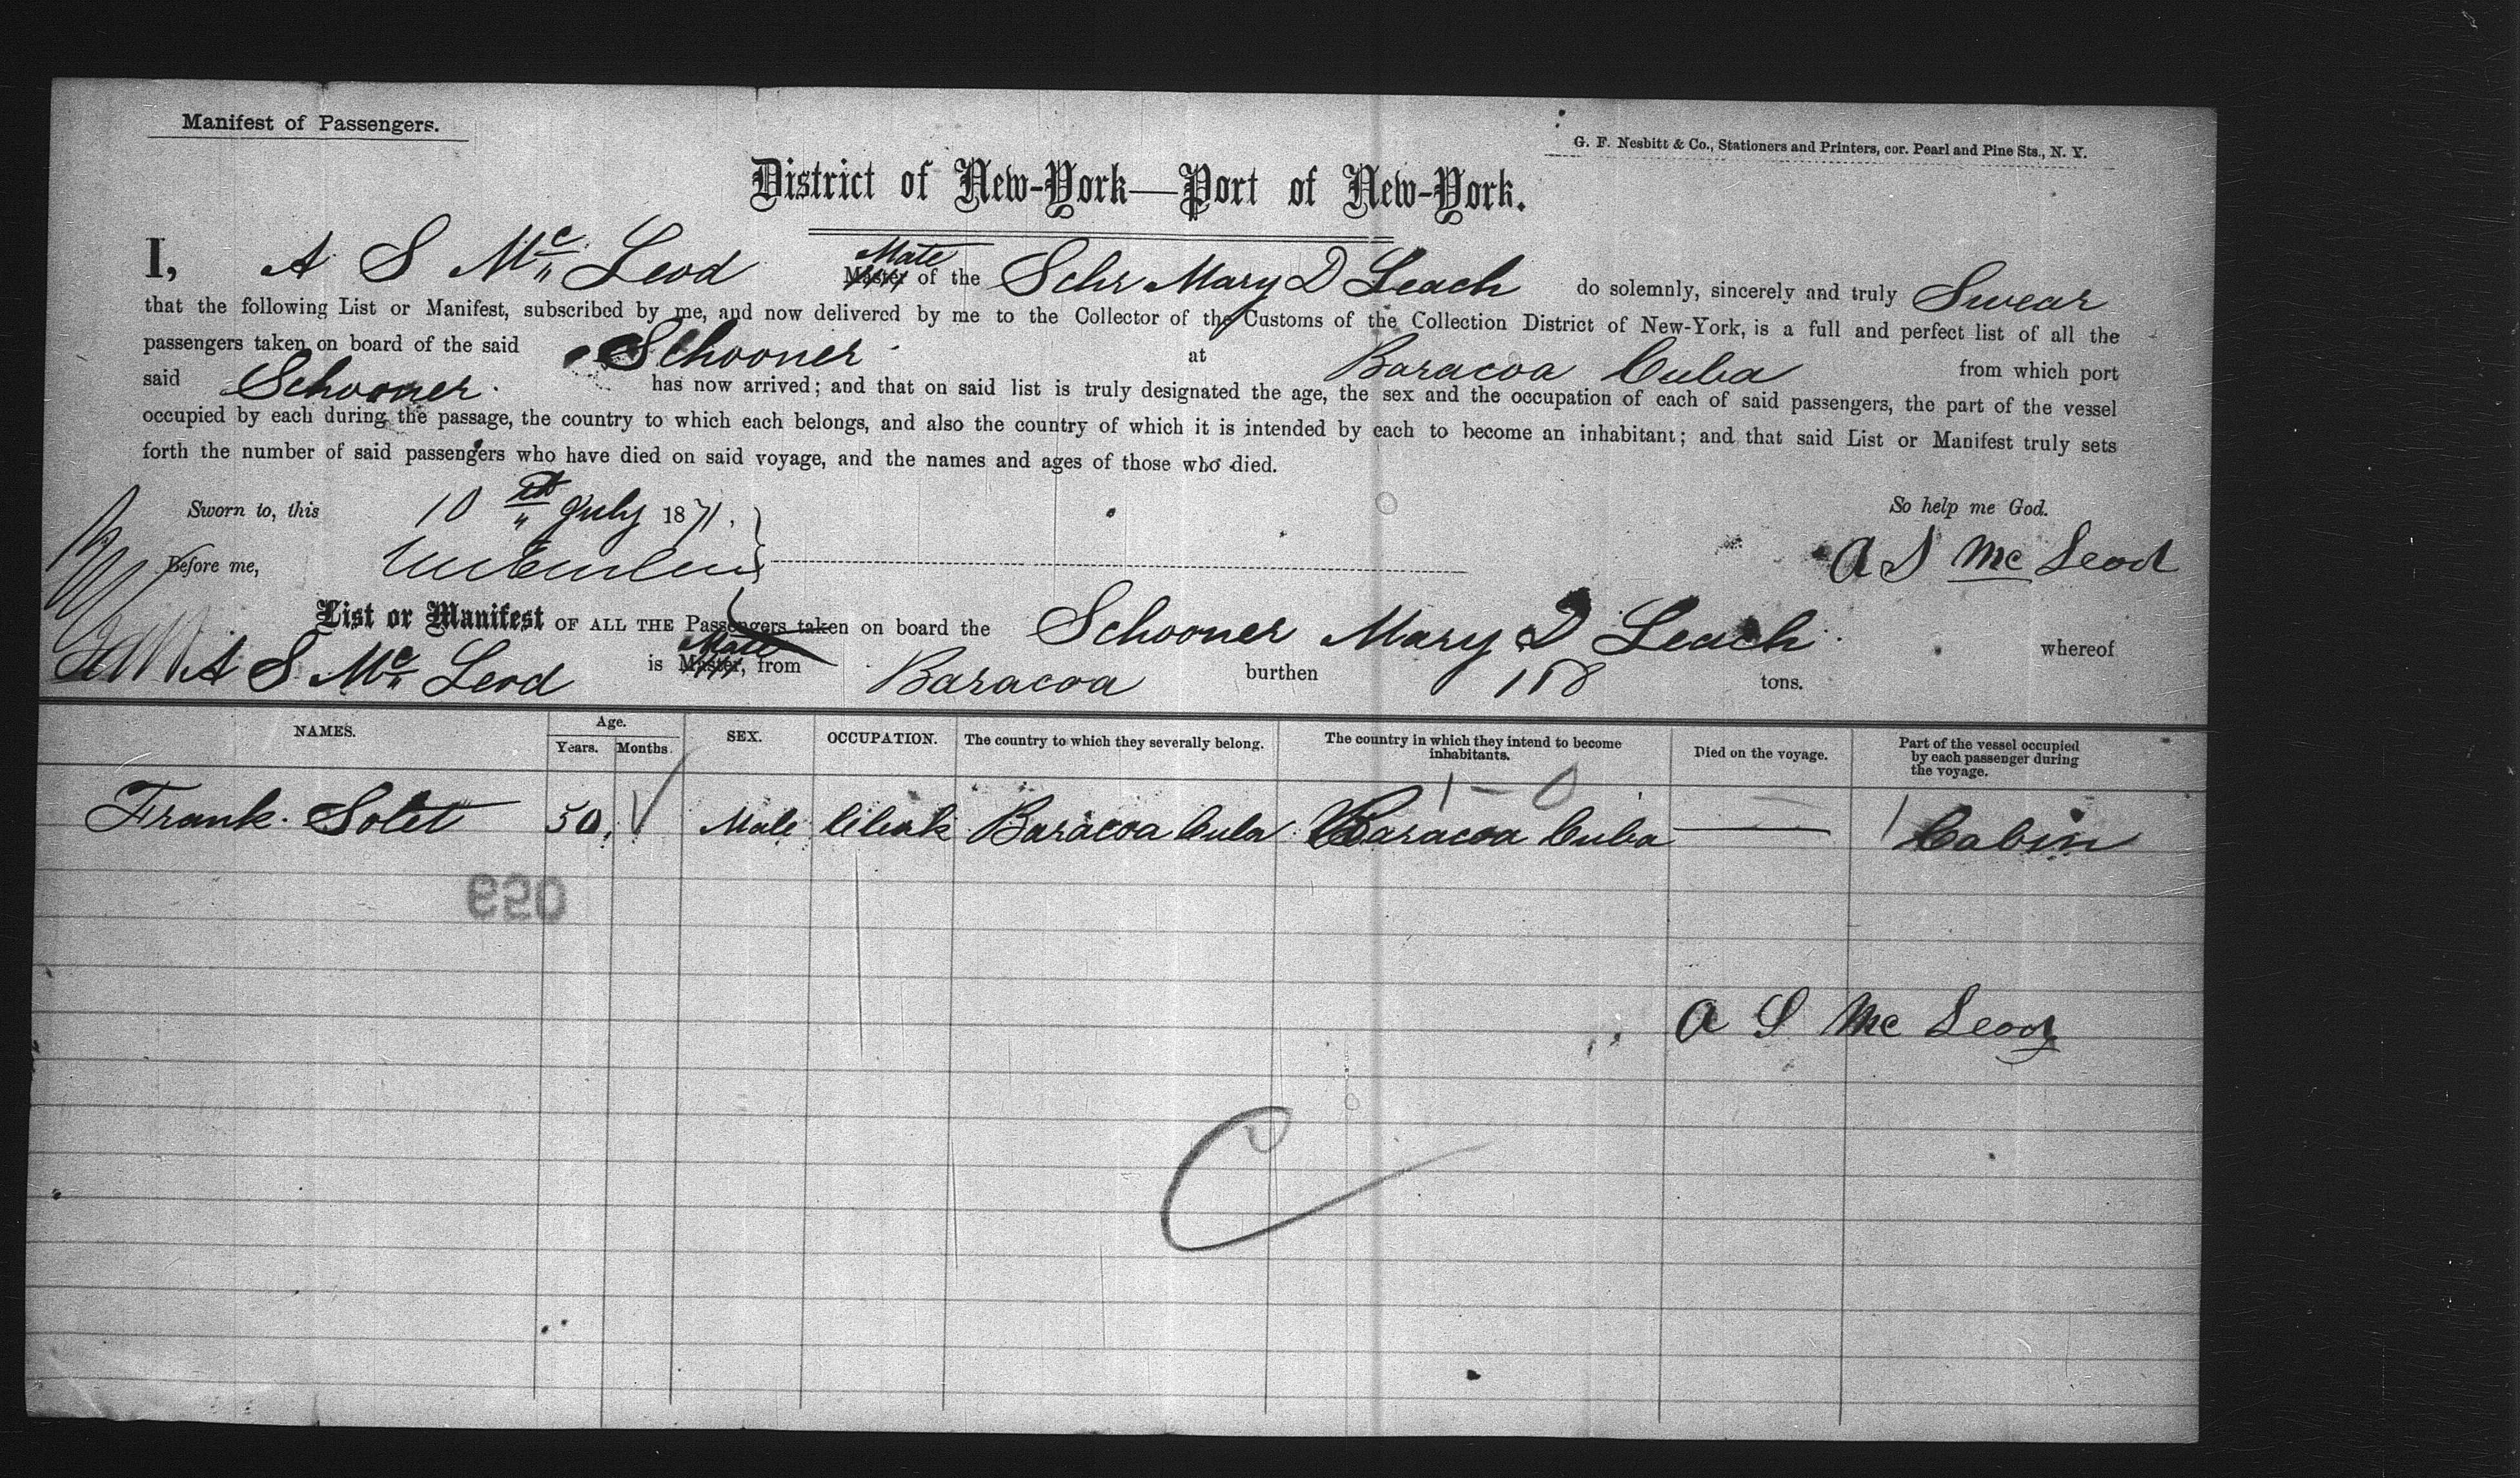 Manifest of Passengers.
G. F. Nesbitt & Co., Stationers and Printers, cor. Pearl and Pine Sts., N. Y.
District of New-York—Port of New-York.
I, A S Mc Leod Mate Master of the Schr Mary D Leach do solemnly, sincerely and truly Swear
that the following List or Manifest, subscribed by me, and now delivered by me to the Collector of the Customs of the Collection District of New-York, is a full and perfect list of all the
passengers taken on board of the said Schooner at Baracoa Cuba from which port
said Schooner has now arrived; and that on said list is truly designated the age, the sex and the occupation of each of said passengers, the part of the vessel
occupied by each during the passage, the country to which each belongs, and also the country of which it is intended by each to become an inhabitant; and that said List or Manifest truly sets
forth the number of said passengers who have died on said voyage, and the names and ages of those who died.
Sworn to, this 10th July 1871, So help me God.
Before me, A S Mc Leod
List or Manifest OF ALL THE Passengers taken on board the Schooner Mary D Leach whereof
A S Mc Leod is Mate Master, from Baracoa burthen 158 tons.
NAMES. Age. Years. Months. SEX. OCCUPATION. The country to which they severally belong. The country in which they intend to become inhabitants. Died on the voyage. Part of the vessel occupied by each passenger during the voyage.
1 – 0
Frank Solet 50 Male Clerk Baracoa Cuba Baracoa Cuba — 1 Cabin
A S Mc Leod
C